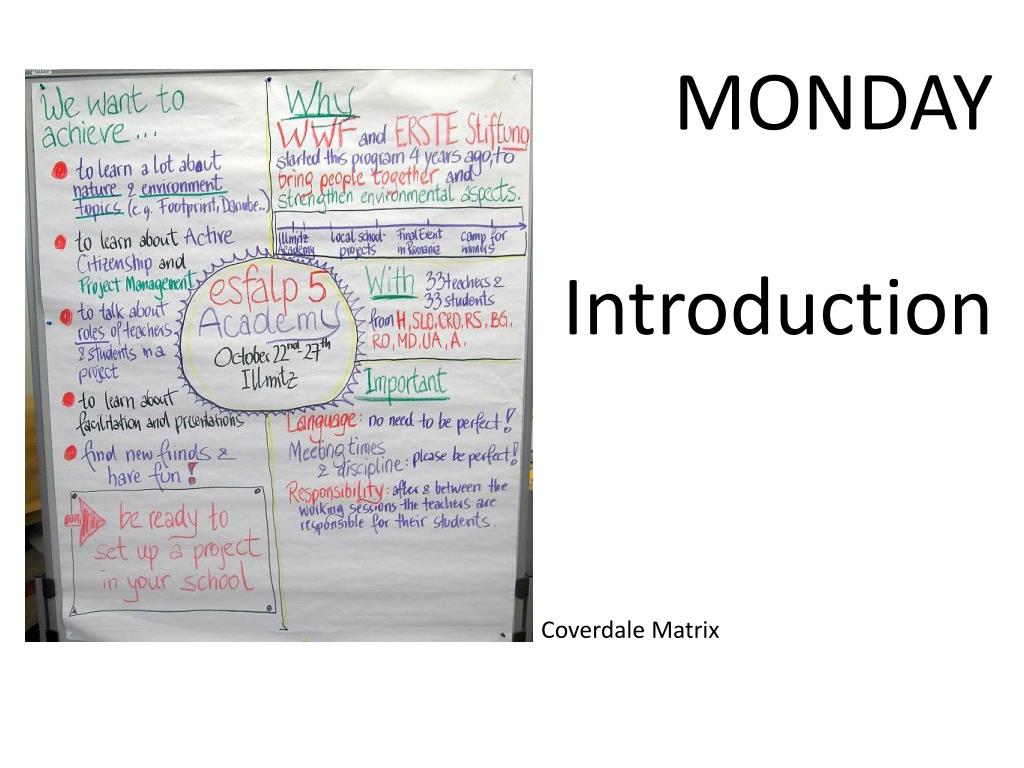 MONDAY
Introduction
We want to
achieve...
to learn a lot about
nature & environment
topics (e.g. Footprint, Danube..)
to learn about Active
Citizenship and
Project Management
to talk about
roles of teachers
& students in a
project
to learn about
facilitation and presentations
find new frinds &
have fun!
be ready to
set up a project
in your school
esfalp 5
Academy
October 22nd-27th
Illmitz
Why
WWF and ERSTE Stiftung
started this program 4 years ago, to
bring people together and
strengthen environmental aspects.
Illmitz
Academy
local school-
projects
Final Event
in Romania
camp for
winners
With 33 teachers &
33 students
from H, SLO, CRO, RS, BG,
RO, MD, UA, A.
Important
Language: no need to be perfect!
Meeting times
& discipline: please be perfect!
Responsibility: after & between the
working sessions the teachers are
responsible for their students.
Coverdale Matrix